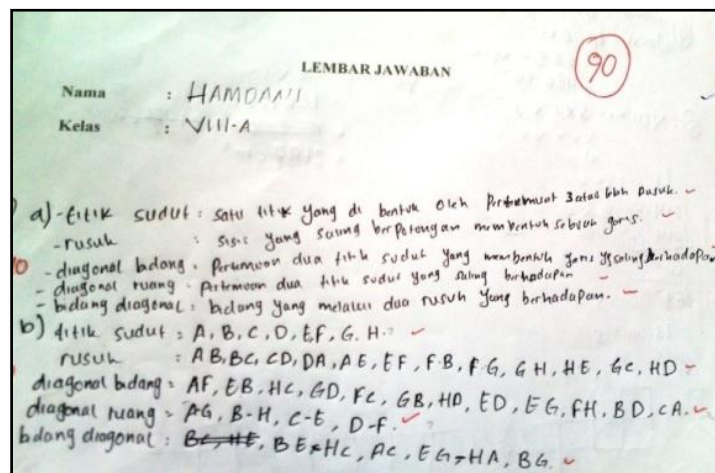 LEMBAR JAWABAN
90
Nama : HAMDANI
Kelas : VIII-A
a) - titik sudut : satu titik yang di bentuk oleh 3 atau lebih rusuk.
- rusuk : sisi yang saling berpotongan membentuk sebuah garis.
- diagonal bidang : Pertemuan dua titik sudut yang membentuk garis yg saling berhadapan
- diagonal ruang : Pertemuan dua titik sudut yang saling berhadapan
- bidang diagonal : bidang yang melalui dua rusuk yang berhadapan.
b) titik sudut : A, B, C, D, E, F, G, H.
rusuk : AB, BC, CD, DA, AE, EF, FB, FG, GH, HE, GC, HD
diagonal bidang = AF, EB, HC, GD, FC, GB, HA, ED, EG, FH, BD, CA.
diagonal ruang = AG, B-H, C-E, D-F.
bidang diagonal : BE HC, AC, EG, HA, BG.